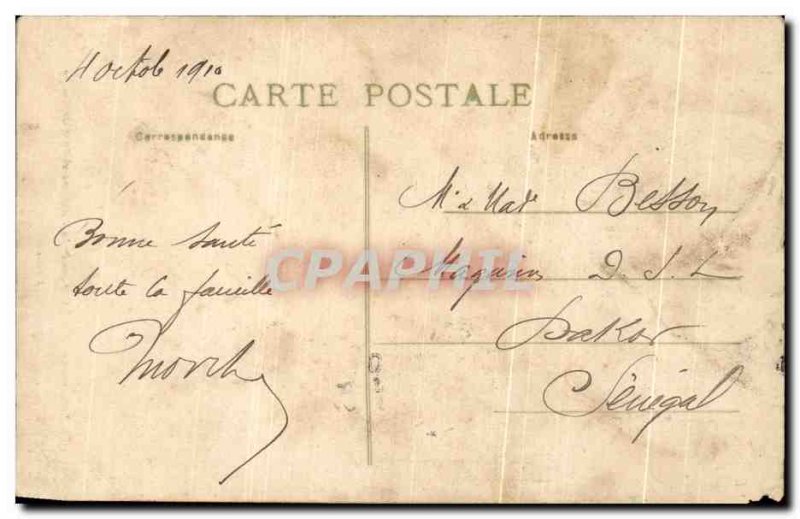 4 Octob 1910
CARTE POSTALE
Correspondance
Adresse
Bonne Santé
toute la famille
Mr & Made Besson
Magasin D. S. L
Dakar
Sénégal
CPAPHIL